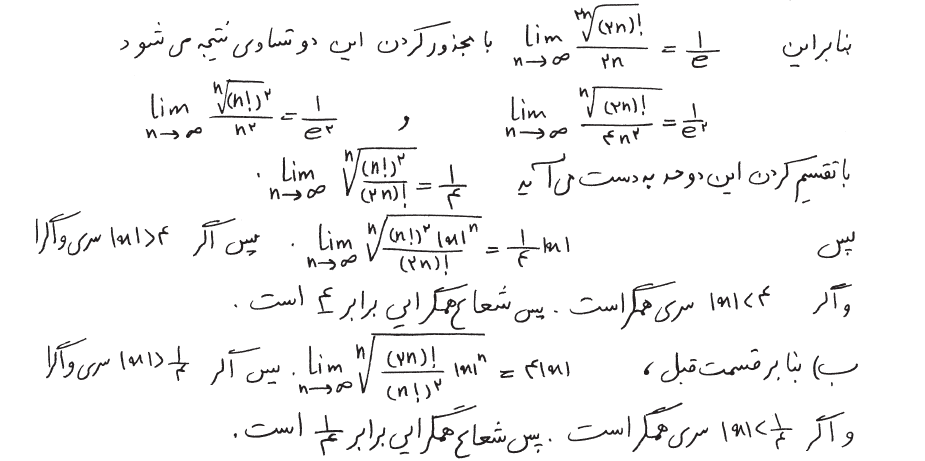 بنابراین lim_{n→∞} \frac{\sqrt[۲n]{(۲n)!}}{۲n} = \frac{۱}{e} با مجذور کردن این دو تساوی نتیجه می شود
lim_{n→∞} \frac{\sqrt[n]{(۲n)!}}{۴n^۲} = \frac{۱}{e^۲} و lim_{n→∞} \frac{\sqrt[n]{(n!)^۲}}{n^۲} = \frac{۱}{e^۲}
با تقسیم کردن این دو حد به دست می آید lim_{n→∞} \sqrt[n]{\frac{(n!)^۲}{(۲n)!}} = \frac{۱}{۴} .
پس lim_{n→∞} \sqrt[n]{\frac{(n!)^۲ |x|^n}{(۲n)!}} = \frac{۱}{۴}|x| . پس اگر |x|>۴ سری واگرا
و اگر |x|<۴ سری همگراست . پس شعاع همگرایی برابر ۴ است .
ب) بنا بر قسمت قبل ، lim_{n→∞} \sqrt[n]{\frac{(۲n)!}{(n!)^۲} |x|^n} = ۴|x| . پس اگر |x|>\frac{۱}{۴} سری واگرا
و اگر |x|<\frac{۱}{۴} سری همگراست . پس شعاع همگرایی برابر \frac{۱}{۴} است .